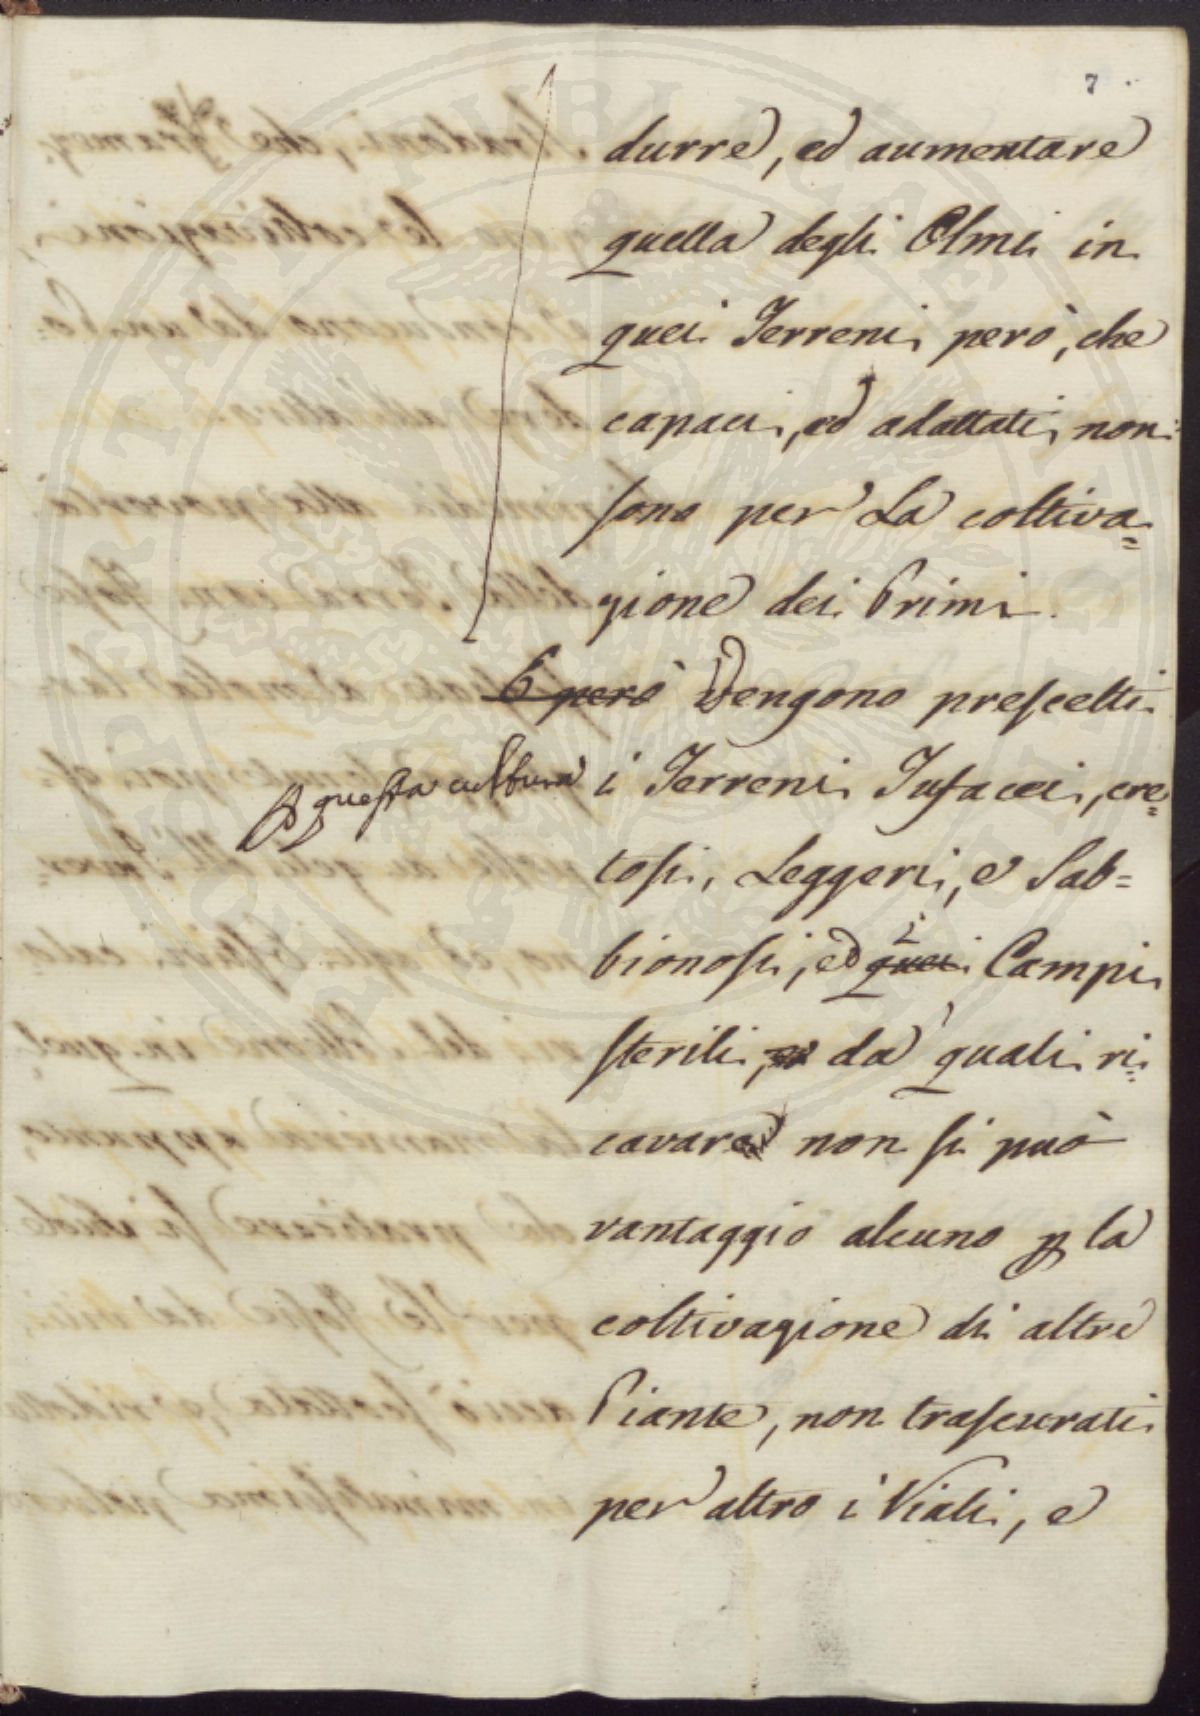 7
durre, ed aumentare
quella degli Olmi in
quei Terreni però, che
capaci, ed adattati non
sono per La coltiva=
zione dei Primi.
E però Vengono prescelti
P questa cultura i Terreni Tufacei, cre=
tosi, Leggeri, e Sab=
bionosi, ed quei i Campi
sterili, da' quali ri=
cavare non si può
vantaggio alcuno p la
coltivazione di altre
Piante, non trascurati
per altro i Viali, e